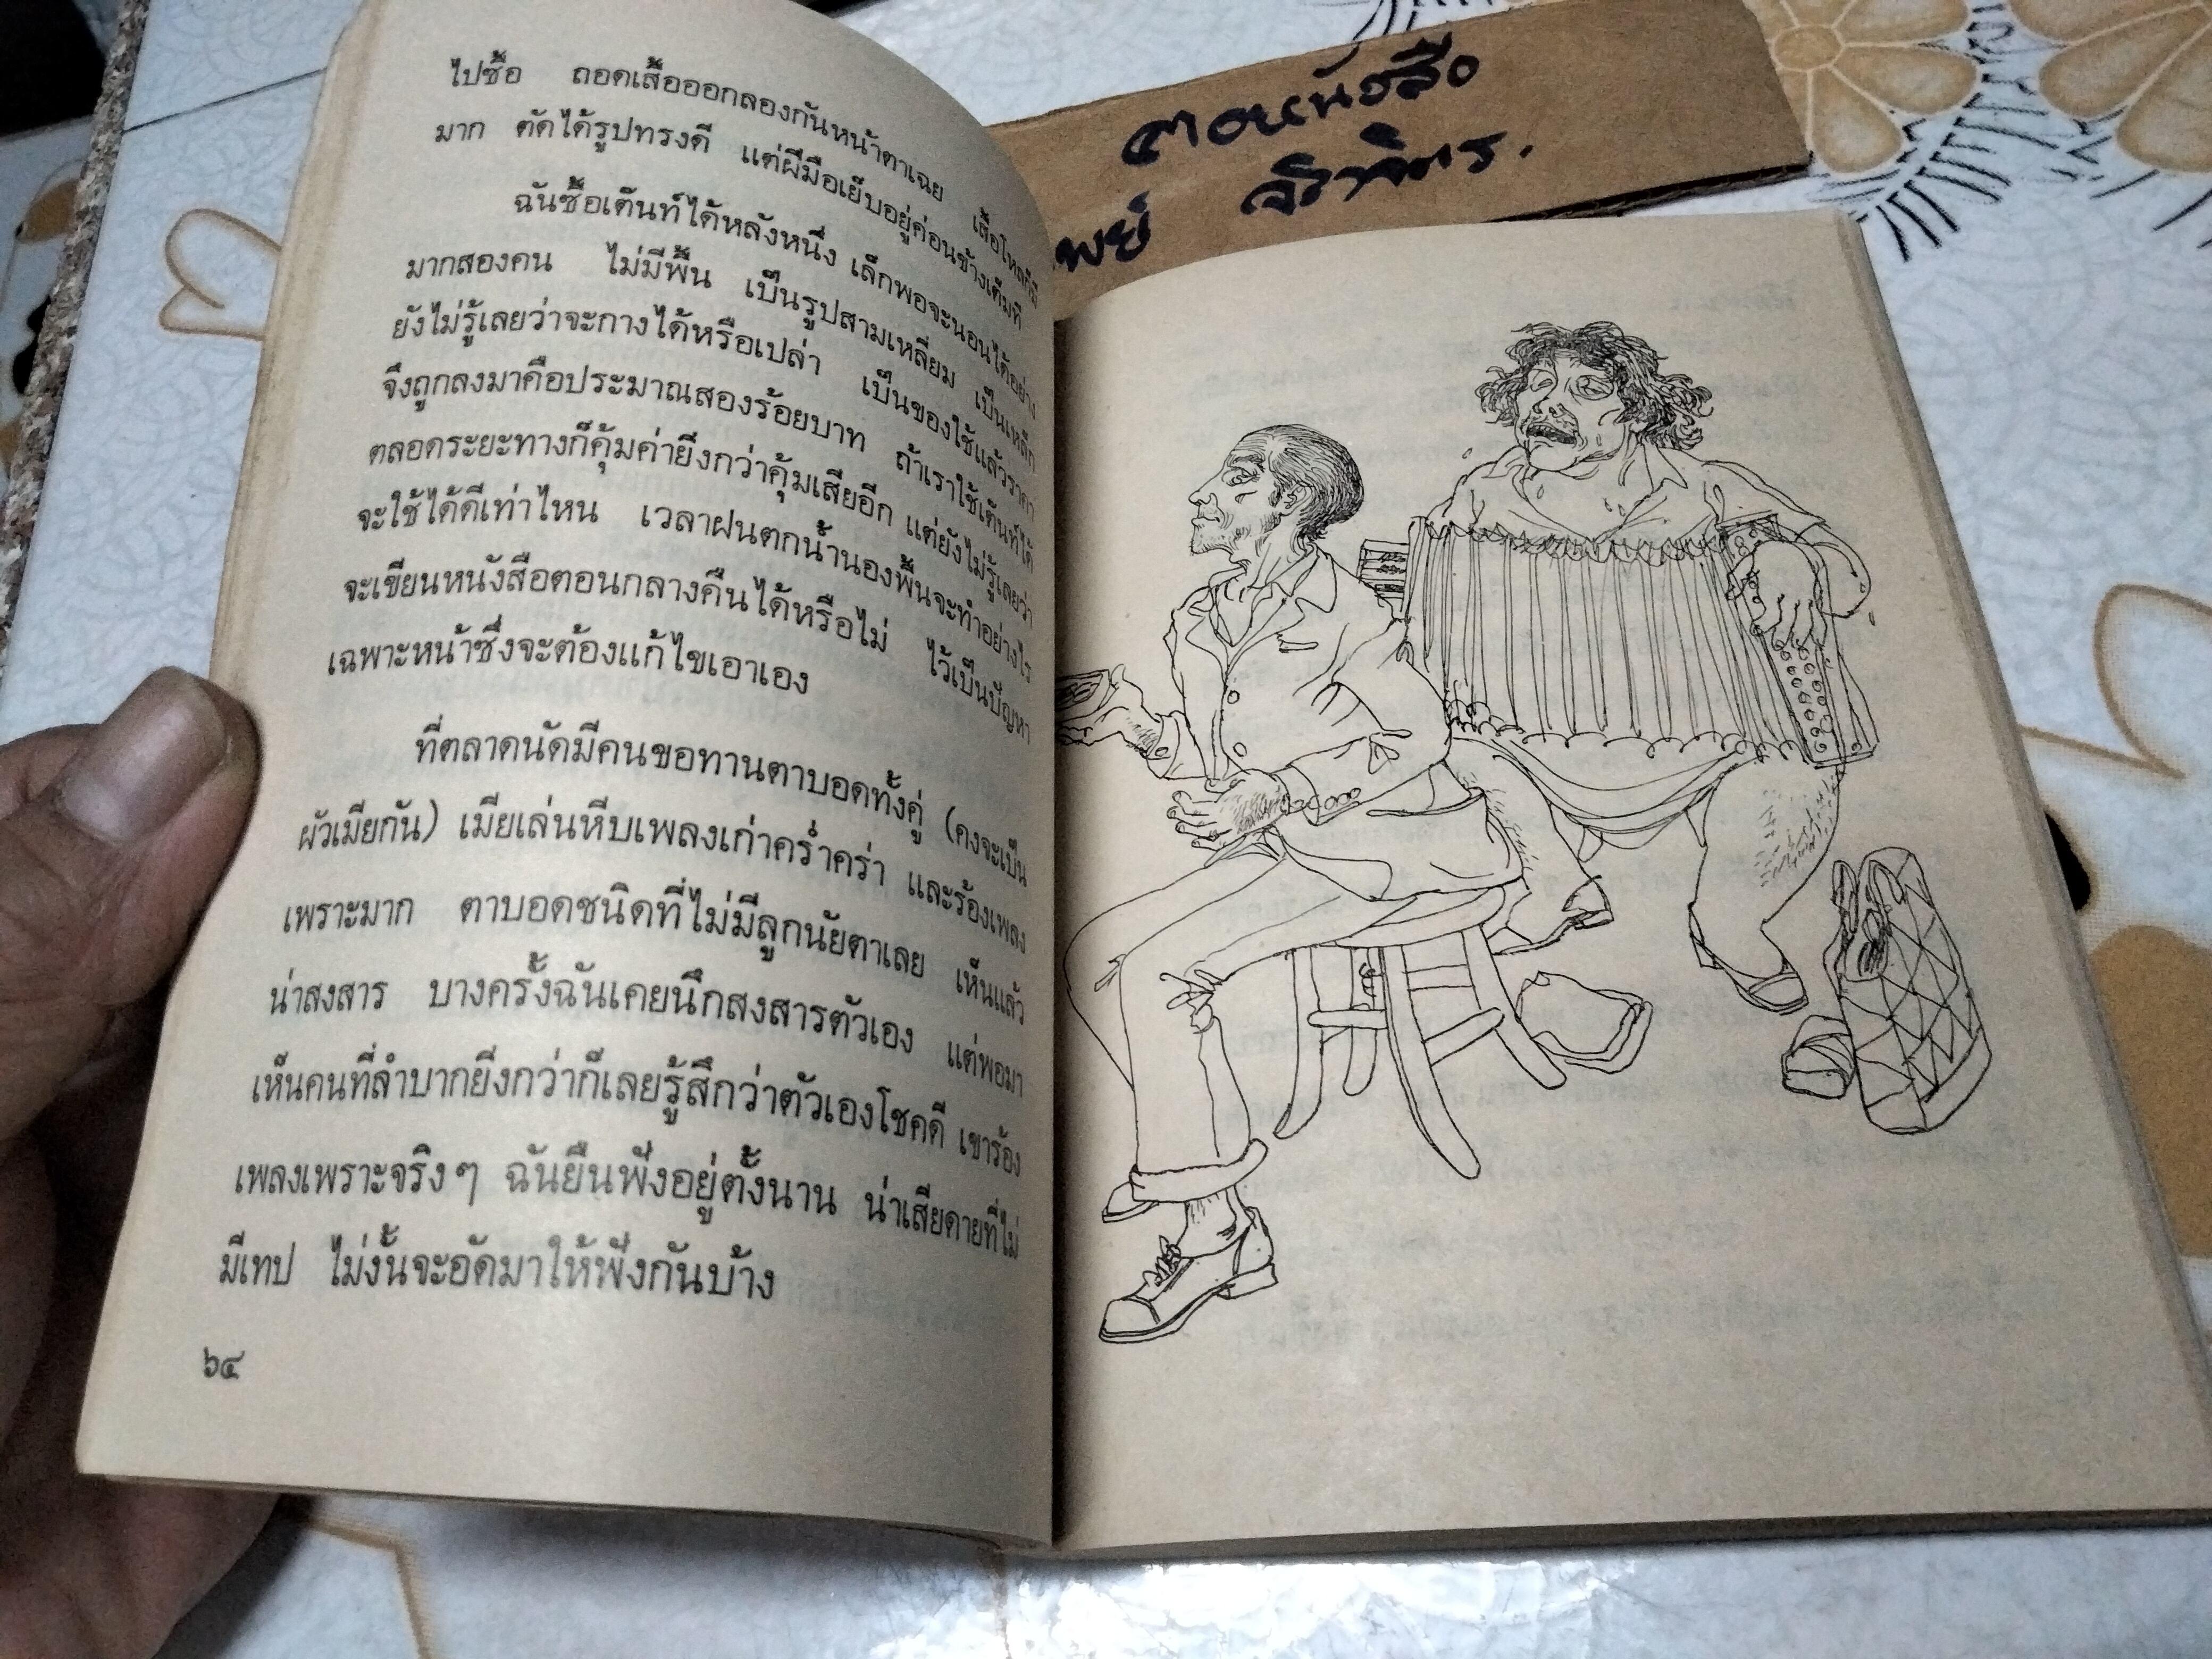 ไปซื้อ ถอดเสื้อออกลองกันหน้าตาเฉย เสื้อไหลก็มี
มาก ตัดได้รูปทรงดี แต่ฝีมือเย็บอยู่ค่อนข้างเต็มที
ฉันซื้อเต็นท์ได้หลังหนึ่ง เล็กพอจะนอนได้อย่าง
มากสองคน ไม่มีพื้น เป็นรูปสามเหลี่ยม เป็นเหล็ก
ยังไม่รู้เลยว่าจะกางได้หรือเปล่า เป็นของใช้แล้วราคา
จึงถูกลงมาคือประมาณสองร้อยบาท ถ้าเราใช้เต็นท์ได้
ตลอดระยะทางก็คุ้มค่ายิ่งกว่าคุ้มเสียอีก แต่ยังไม่รู้เลยว่า
จะใช้ได้ดีเท่าไหน เวลาฝนตกน้ำนองพื้นจะทำอย่างไร
จะเขียนหนังสือตอนกลางคืนได้หรือไม่ ไว้เป็นปัญหา
เฉพาะหน้าซึ่งจะต้องแก้ไขเอาเอง
ที่ตลาดนัดมีคนขอทานตาบอดทั้งคู่ (คงจะเป็น
ผัวเมียกัน) เมียเล่นหีบเพลงเก่าคร่ำคร่า และร้องเพลง
เพราะมาก ตาบอดชนิดที่ไม่มีลูกนัยตาเลย เห็นแล้ว
น่าสงสาร บางครั้งฉันเคยนึกสงสารตัวเอง แต่พอมา
เห็นคนที่ลำบากยิ่งกว่าก็เลยรู้สึกว่าตัวเองโชคดี เขาร้อง
เพลงเพราะจริงๆ ฉันยืนฟังอยู่ตั้งนาน น่าเสียดายที่ไม่
มีเทป ไม่งั้นจะอัดมาให้ฟังกันบ้าง
๖๔